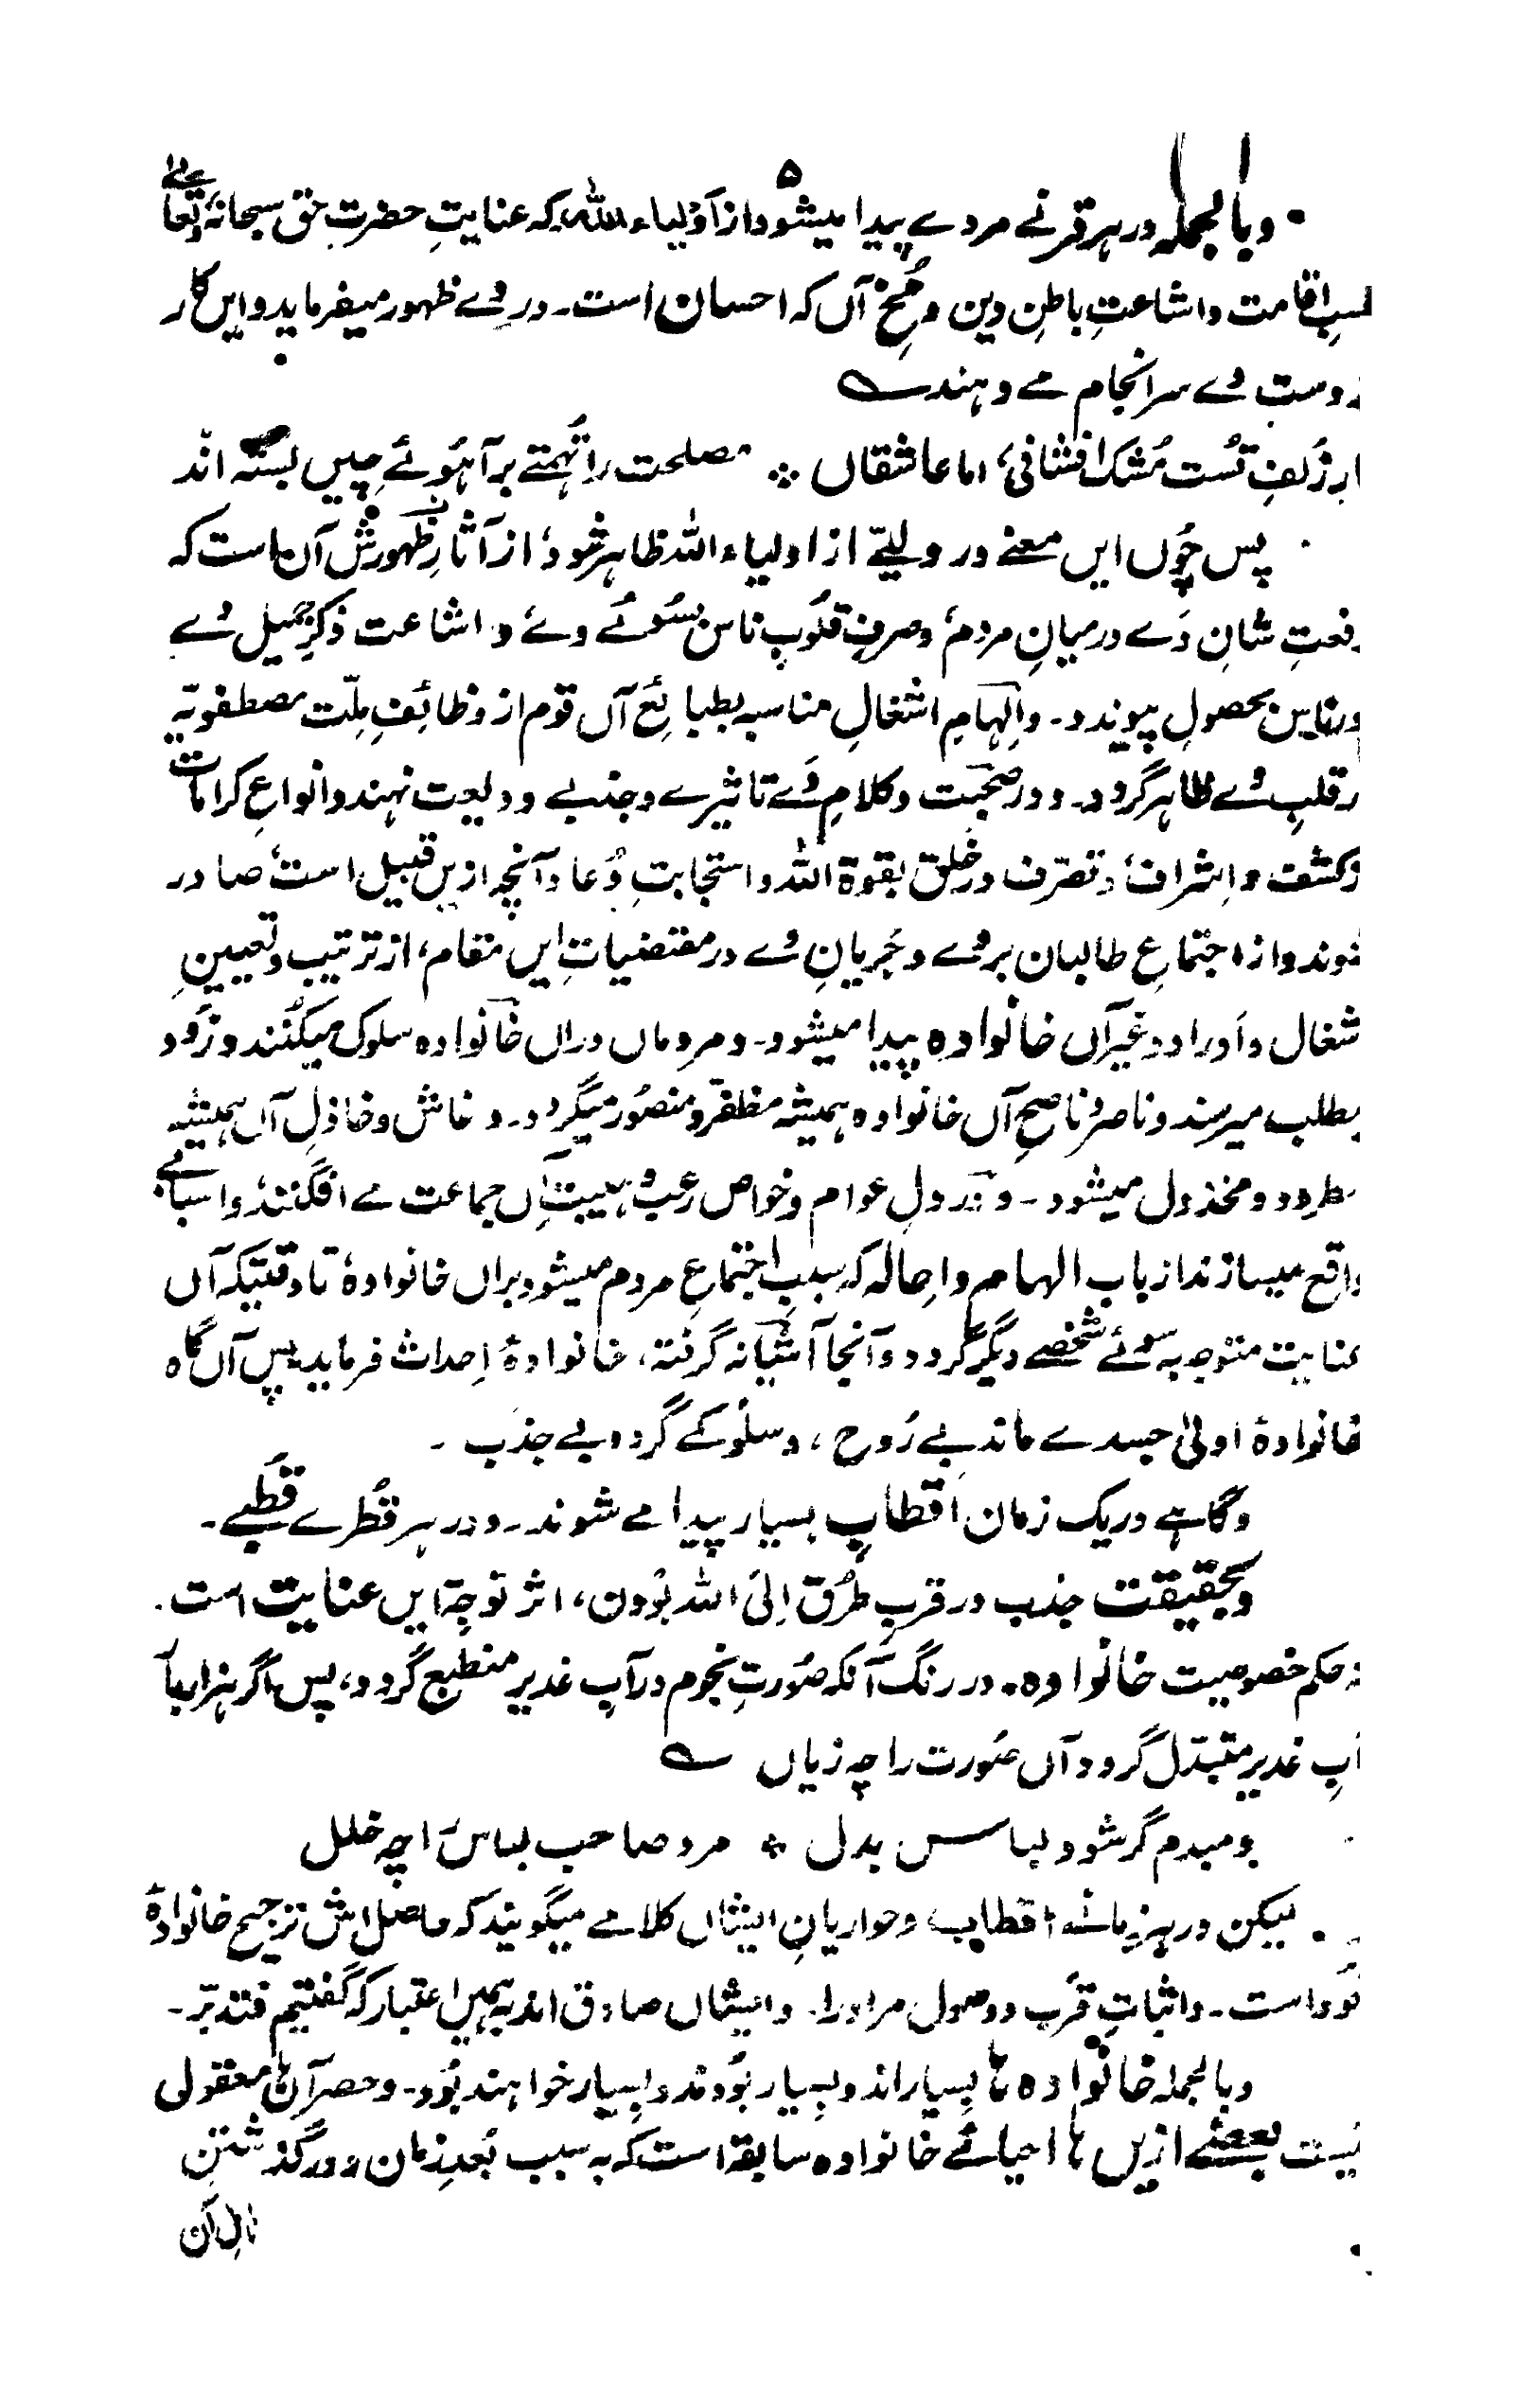 ۵
وبالجملہ در ہر قرنے مردے پیدا میشود از اولیاء اللہ کہ عنایتِ حضرتِ حق سبحانہٗ وتعالےٰ
اقامت واشاعتِ باطنِ دین ومُخِ آں کہ احسان است۔ در وے ظہور میفرماید و ایں کار
دست وے سرانجام مے دہند ؎
زُلفِ تُست مُشک افشانی، اما عاشقاں ؞ مصلحت را تُہمتے بر آہُوئے چیں بستہ اند
پس چُوں ایں معنے در ولیّے از اولیاء اللہ ظاہر شود، از آثارِ ظہورش آن است کہ
رفعتِ شانِ وَے درمیانِ مردم، وصرفِ قلُوبِ ناس بسُوئے وے، و اشاعت ذکرِ جمیل وے
در ناس بحصول پیوندد۔ و اِلہامِ اشغالِ مناسبہ بطبائعِ آں قوم از وظائفِ مِلّت مصطفویّہ
قلبِ وے ظاہر گردد۔ و در صُحبت و کلامِ وَے تاثیرے و جذبے ودیعت نہند و انواعِ کرامات
کشف و اِشراف، و تصرّف در خلق بقوۃ اللہ و استجابتِ دُعا و آنچہ ازیں قبیل است، صادر
شوند و از اجتماعِ طالبان بر وے و جَریانِ وے در مقتضیاتِ ایں مقام، از ترتیب و تعیینِ
شغال و اَوراد و غیرِ آں خانوادہ پیدا میشود۔ و مردماں دراں خانوادہ سلوک میکنند و زُود
بطلب میرسند و ناصر و ناصحِ آں خانوادہ ہمیشہ مظفّر و منصُور میگردد۔ و غاش و خاذلِ آں ہمیشہ
مطرود و مخذول میشود۔ و در دلِ عوام و خواص رعب و ہیبتِ آں جماعت مے افگنند، و اسبابے
واقع میسازند از باب الہام و احالہ کہ سببِ اجتماعِ مردم میشود براں خانوادہ، تا وقتیکہ آں
عنایت متوجہ بسُوئے شخصے دیگر گردد و آنجا آشیانہ گرفتہ، خانوادۂ اِحداث فرماید، پس آں گاہ
خانوادۂ اولیٰ جسدے ماند بے رُوح، و سلُوکے گردد بے جذب ۔
و گاہے در یک زمان اقطابِ بسیار پیدا مے شوند۔ و در ہر قُطرے قطبے۔
و بحقیقت جذب در قربِ طُرُق اِلیَ اللہ بُودن، اثر توجّہِ ایں عنایت است۔
حکم خصوصیت خانوادہ۔ در رنگ آنکہ صُورتِ نجوم در آبِ غدیر منطبع گردد، پس اگر ہزار بار
آبِ غدیر متبدّل گردد آں صُورت را چہ زیاں ؎
دمبدم گر شود لباس بدل ؞ مرد صاحب لباس را چہ خلل
لیکن در ہر زمانہ اقطاب و حواریانِ ایشاں کلامے میگویند کہ حاصل اش ترجیح خانوادۂ
خود است۔ و اثباتِ قرب و وصول مر او را۔ و ایشاں صادق اند بہمیں اعتبار کہ گفتیم فتدبّر۔
و بالجملہ خانوادہ ہا بسیار اند و بسیار بُودند و بسیار خواہند بُود۔ و حصرِ آں ہا معقولی
نیست بعضے ازیں ہا احیائے خانوادہ سابقہ است کہ بہ سبب بُعدِ زمان و در گذشتنِ